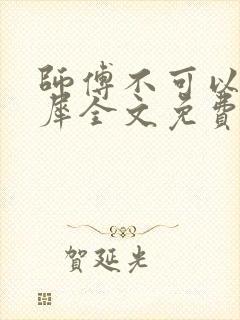 師傅不可以
犀全文免費
賀延光